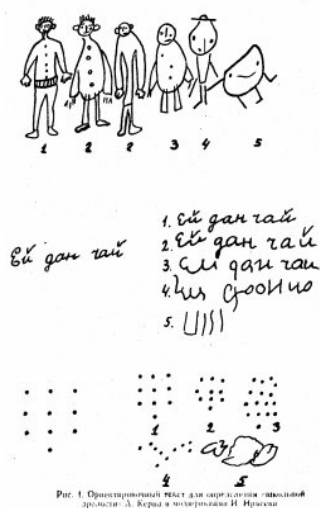 1 2 2 3 4 5
Ей дан чай
1. Ей дан чай
2. Ей дан чай
3. Ей дан чай
4.
5.
1 2 3
4 5
Рис. 1. Ориентировочный текст для определения «школьной
зрелости» А. Керна в модификации И. Ирасека